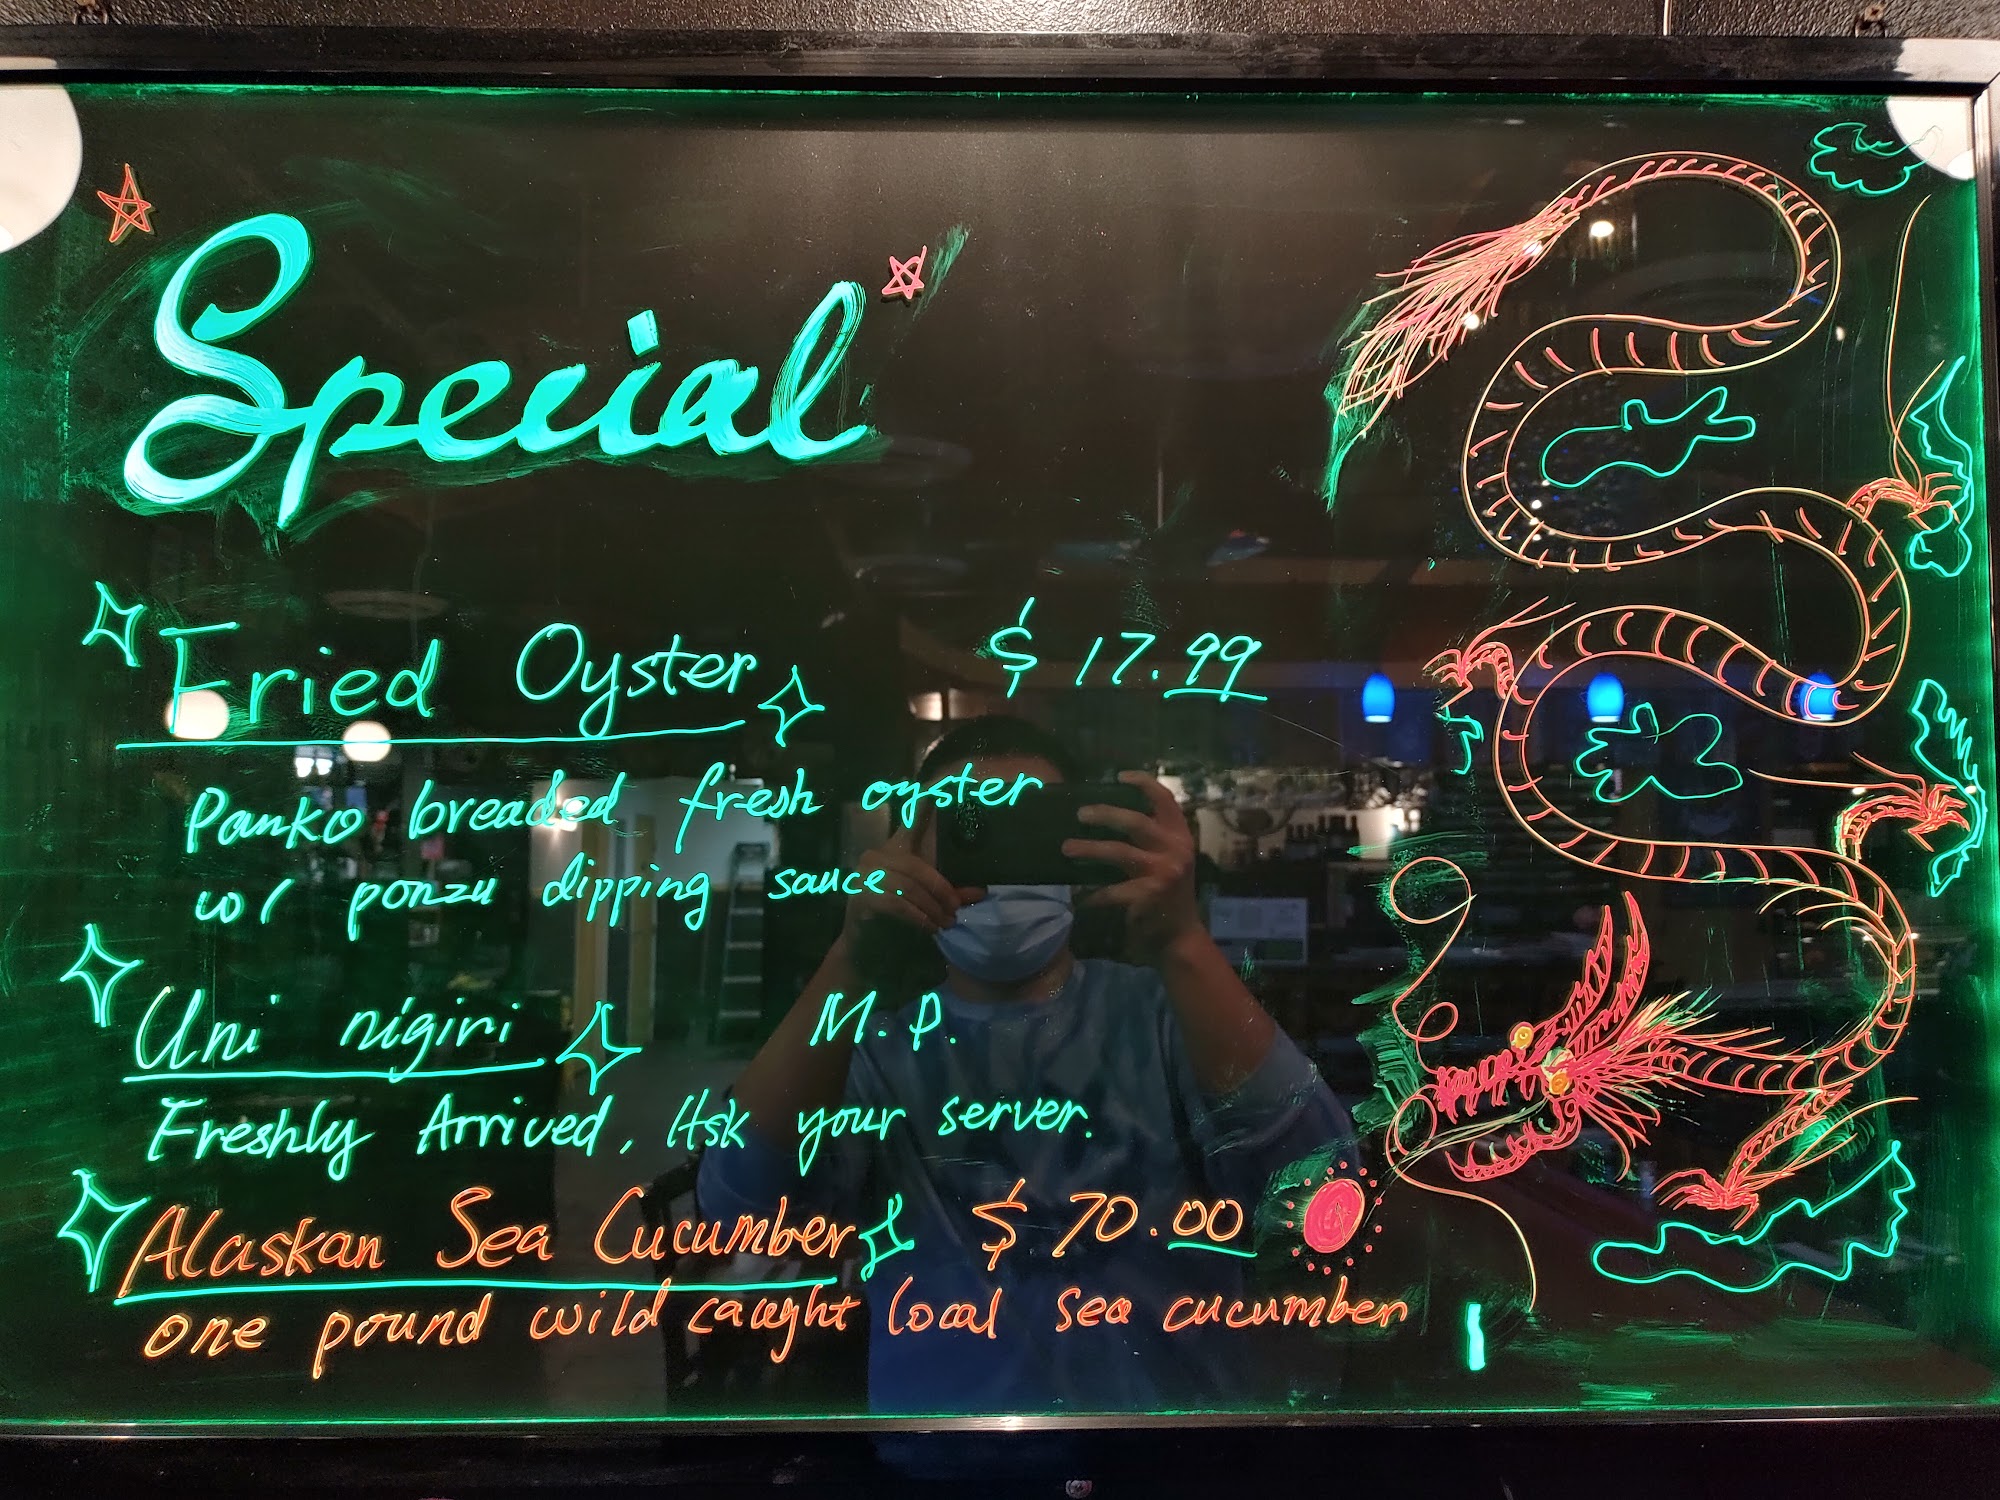 Special
Fried Oyster $ 17.99
Panko breaded fresh oyster
w/ ponzu dipping sauce.
Uni nigiri M.P.
Freshly Arrived, Ask your server.
Alaskan Sea Cucumber $ 70.00
one pound wild caught local sea cucumber